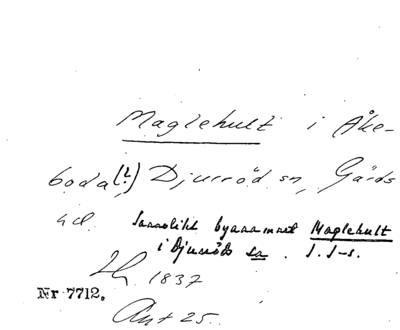 Maglehult i Åke-
boda(?) Djurröd sn, Gärds
hd. Sannolikt bynamnet Maglehult
i Djurröds sn. I. I-s.
1837
Nr 7712.
Ant 25.